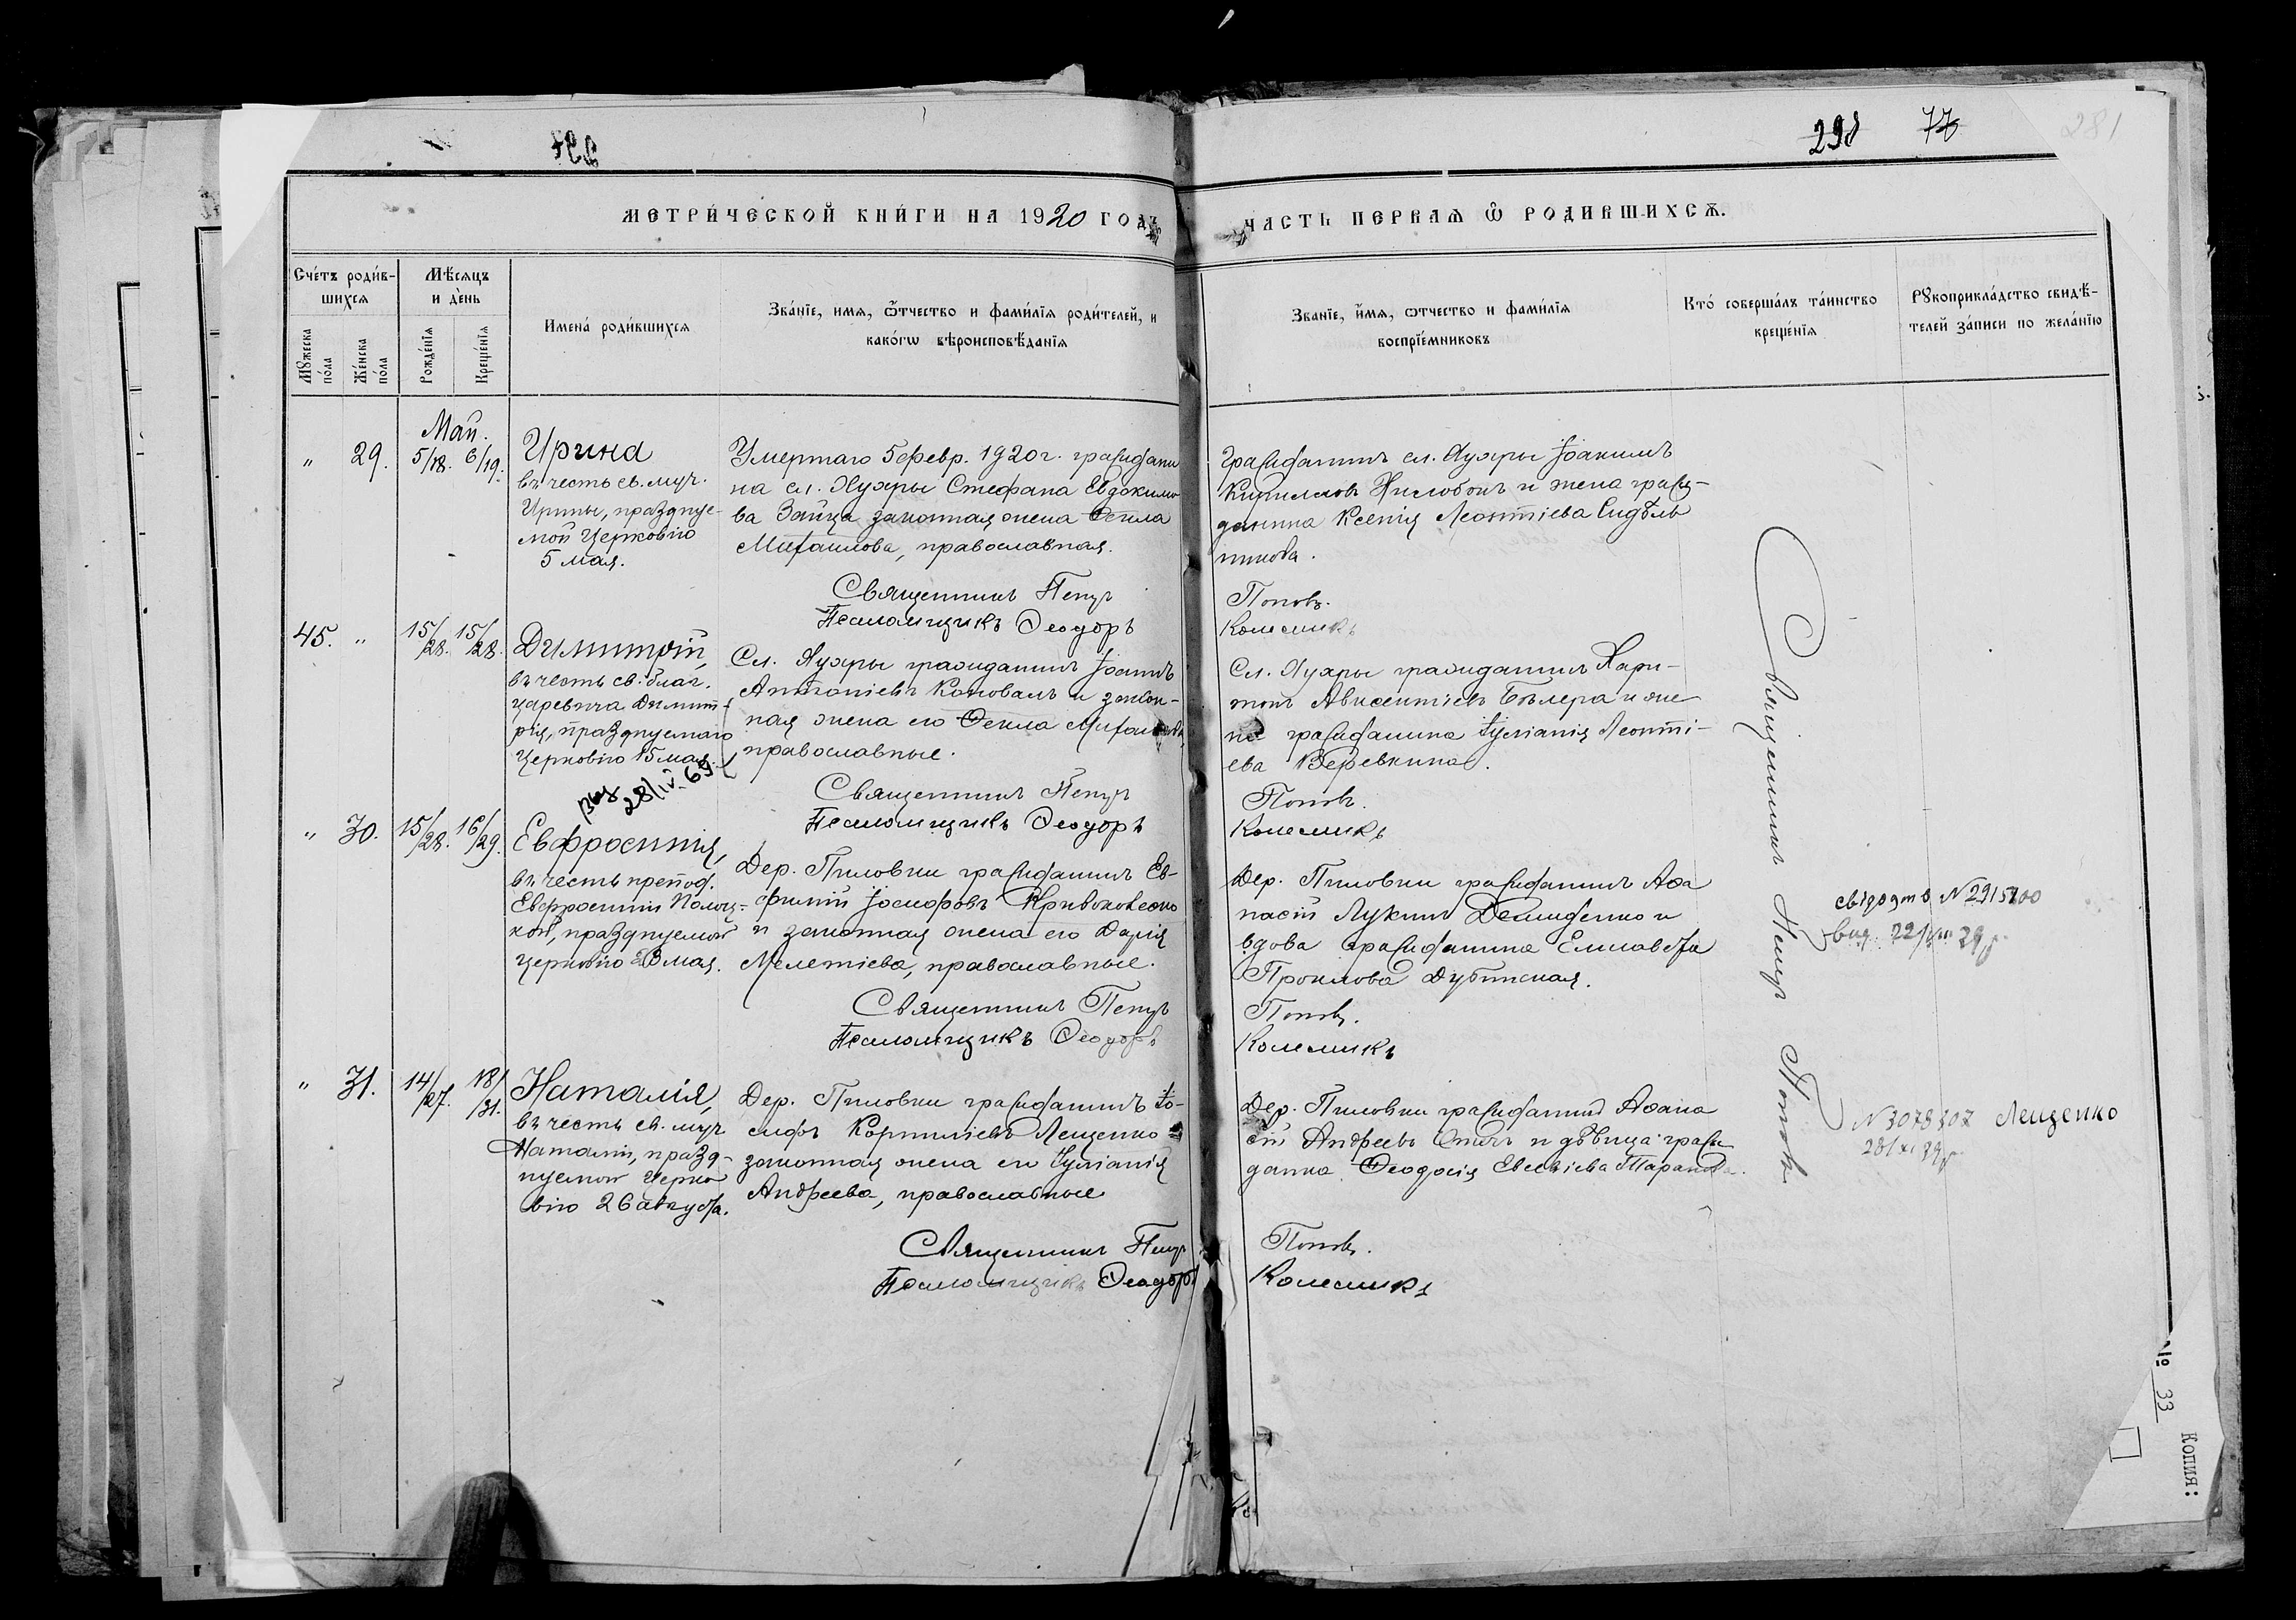 298 77 281
МЕТРИ́ЧЕСКОЙ КНИ́ГИ НА 1920 ГОДЪ
ЧАСТЬ ПЕРВАѦ Ѿ РОДИВШИХСѦ.
Сче́тъ роди́в-
шихсѧ
Мꙋжеска по́ла
Же́нска по́ла
Мѣ́сѧцъ
и де́нь
Рожде́нїѧ
Креще́нїѧ
Имена́ роди́вшихсѧ
Зва́нїе, имѧ, ѻ҆́тчество и фами́лїѧ роди́телей, и
како́гѡ вѣроисповѣ́данїѧ
Зва́нїе, и҆́мѧ, ѻтчество и фами́лїѧ
воспрїе́мниковъ
Кто́ соверша́лъ та́инство
креще́нїѧ
Рꙋкоприкла́дство свидѣ́-
телей за́писи по жела́нїю
Май.
" 29. 5/18. 6/19.
Ирина
въ честь св. муч.
Ирины, праздnуе-
мой Церковію
5 мая.
Умершаго 5 февр. 1920 г. граждани
на сл. Ауары Стефана Евдокимо
ва Зайца законная жена Ѳекла
Михаилова, православная.
Священникъ Петръ
Псаломщикъ Ѳеодоръ
Гражданинъ сл. Іоакимъ
Кирилловъ и жена граж-
данина Ксенія Леонтіева
Поповъ.
Колесникъ
45. " 15/28. 15/28.
Димитрій,
въ честь св. благ.
царевича Димит-
рія, празднуемаго
Церковію 15 мая.
28/IV-69
Сл. гражданинъ Іоаннъ
Антоніевъ Коновалъ и закон-
ная жена его Ѳекла
православные.
Священникъ Петръ
Псаломщикъ Ѳеодоръ
Сл. гражданинъ Хари-
тонъ Авксентіевъ и же
на гражданина Іуліанія Леонті-
ева Веревкина.
Поповъ.
Колесникъ
" 30. 15/28. 16/29.
Евфросинія,
въ честь препод.
Евфросиніи Полоц-
кой, празднуемой
Церковію 23 мая.
Дер. Пиловки гражданинъ Ев-
фимій Іосифовъ
и законная жена его Дарія
Мелетіева, православные.
Священникъ Петръ
Псаломщикъ Ѳеодоръ
Дер. Пиловки гражданинъ Аѳа
насій Лукинъ Демиденко и
вдова гражданина Елисавета
Проклова Дубинская.
Поповъ.
Колесникъ
" 31. 14/27. 18/31.
Наталія,
въ честь св. муч.
Наталіи, празд-
нуемой Церко
вію 26 августа.
Дер. Пиловки гражданинъ Іо-
сифъ Корниліевъ Лещенко и
законная жена его Іуліанія
Андреева, православные
Священникъ Петръ
Псаломщикъ Ѳеодоръ
Дер. Пиловки гражданинъ Аѳана
сій Андреевъ и дѣвица граж
данка Ѳеодосія Евсевіева Таранова.
Поповъ.
Колесникъ
Священникъ Петръ Поповъ
N 2915700
N 3078307 Лещенко
№ 33
КОПИЯ: